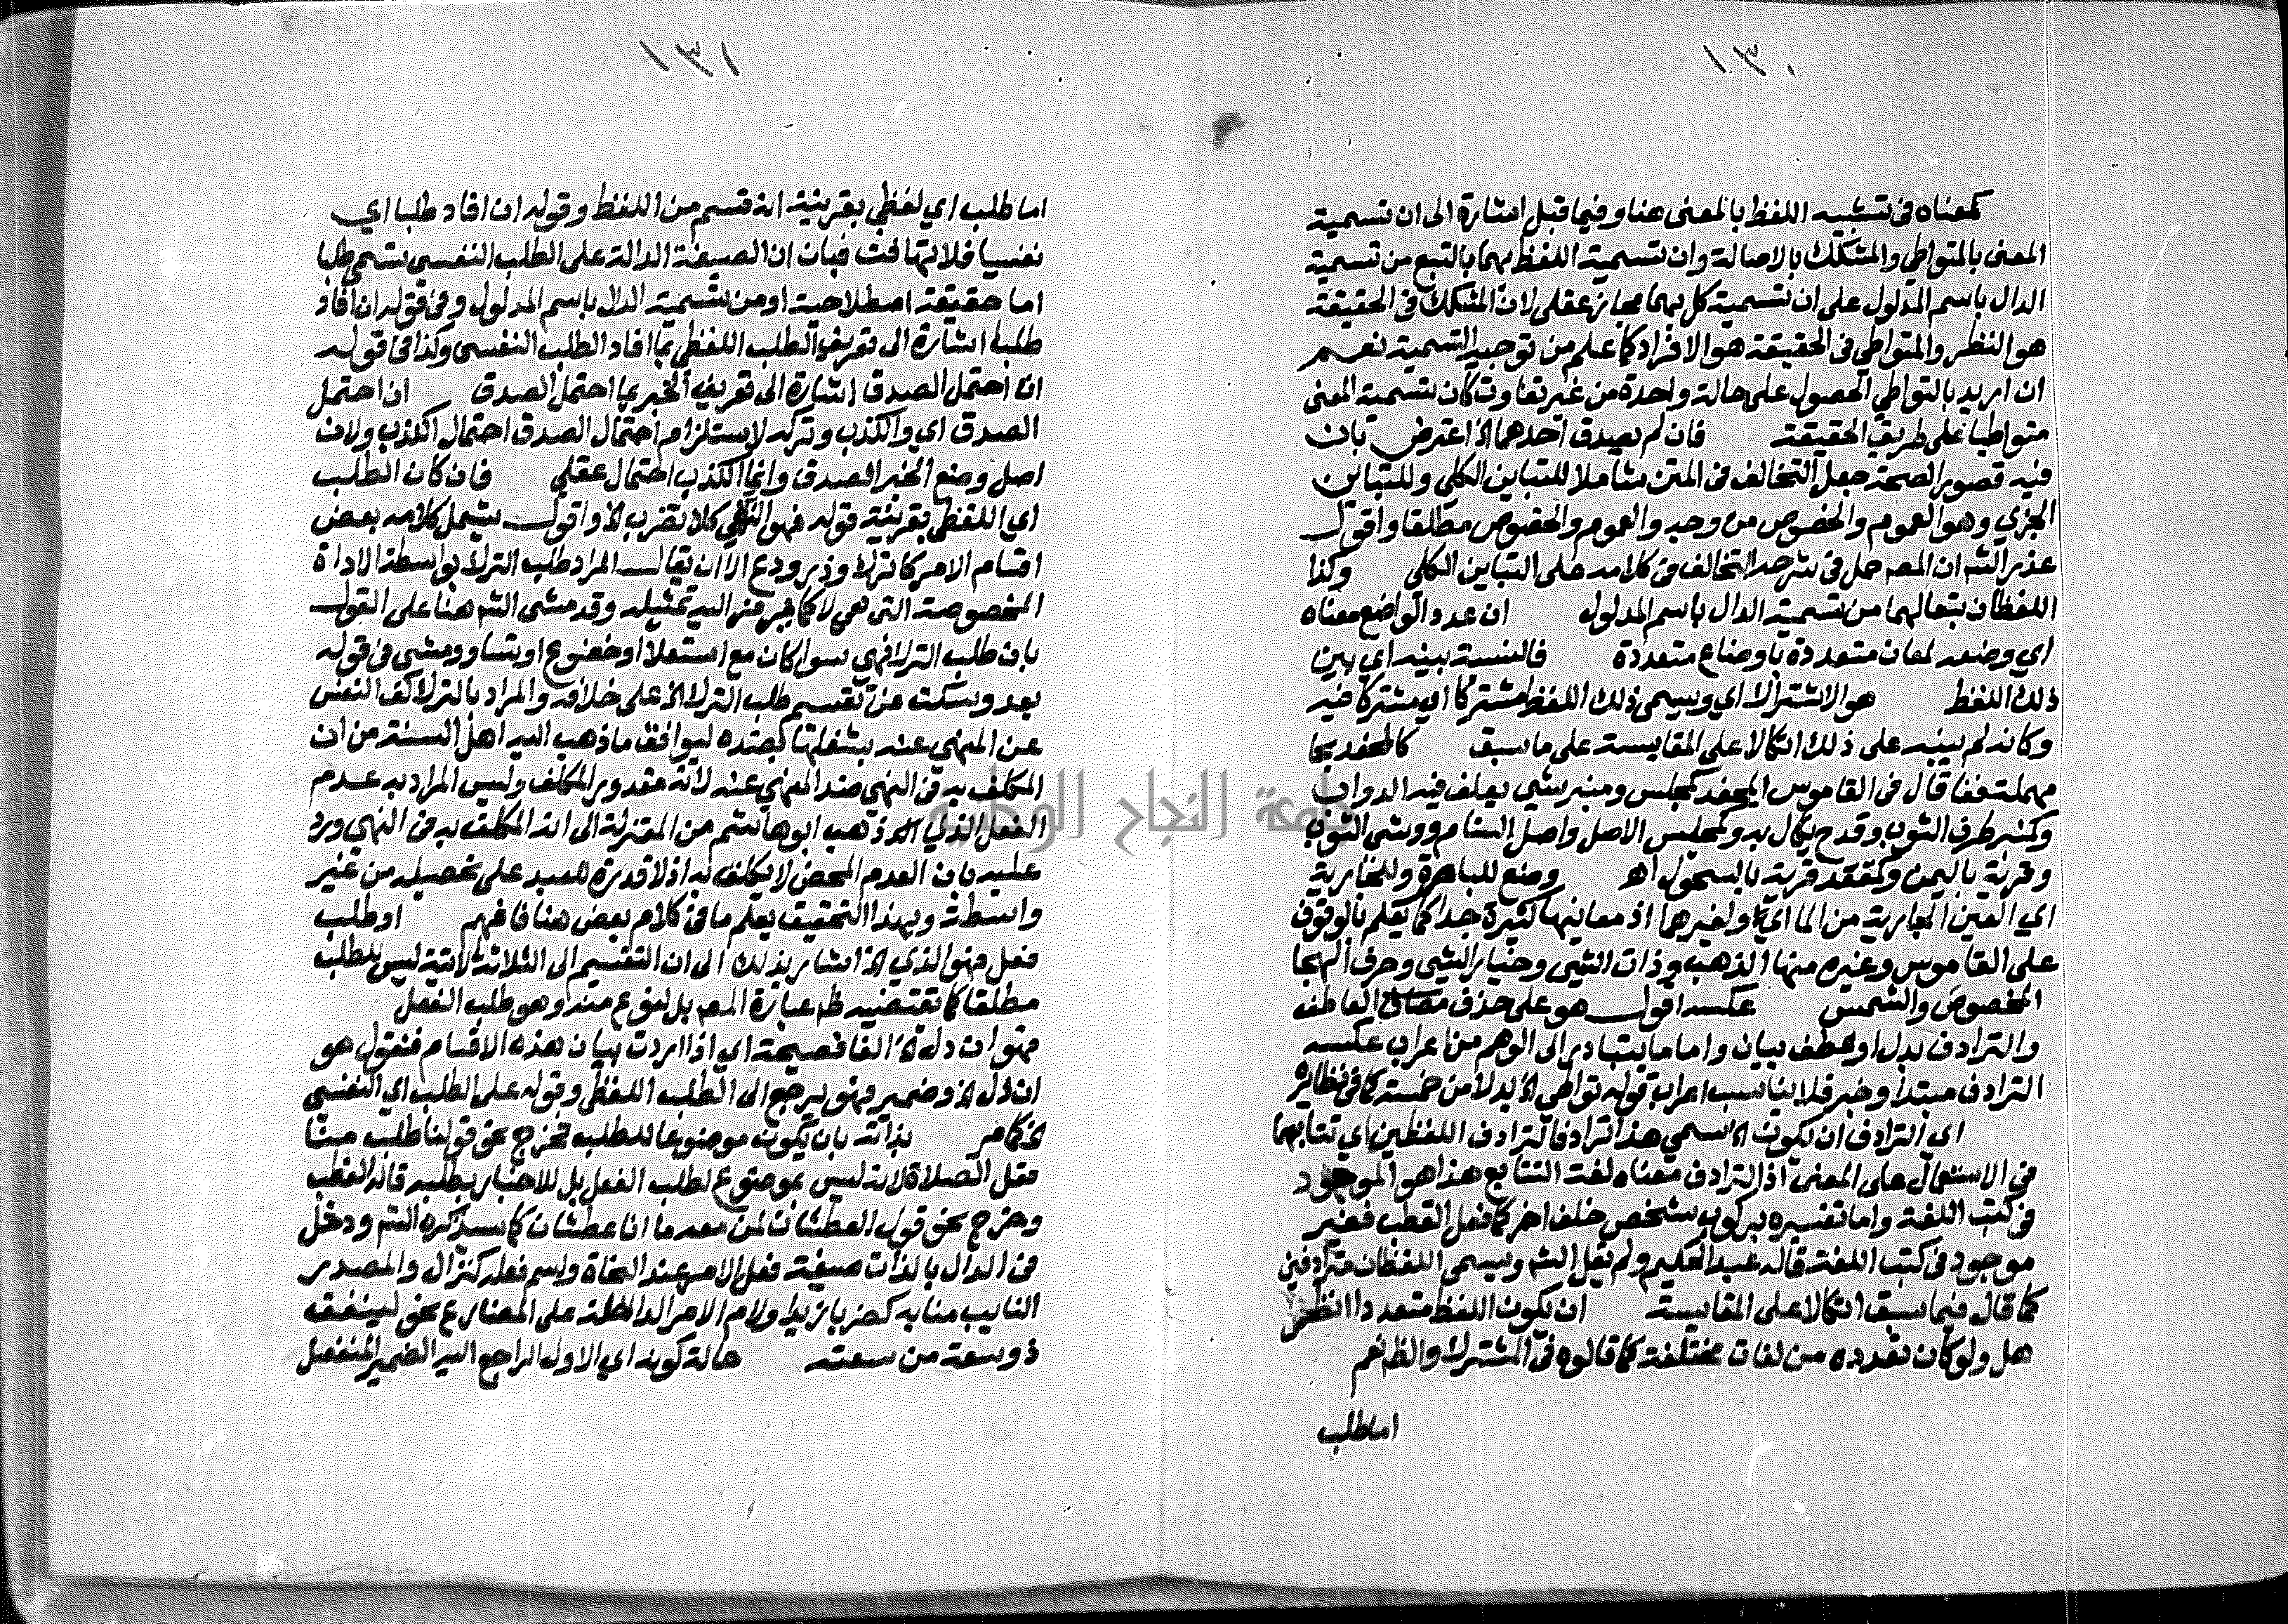 ١٣٠
كمعناه في تشبيه اللفظ بالمعنى هنا وفيما قبل اشارة الى ان تسمية
المعنى بالمتواطي والمشكك بالاصالة وان تسمية اللفظ بهما بالتبع من تسمية
الدال باسم المدلول على ان تسمية كل بهما مجاز عقلي لان المشكك في الحقيقة
هو النظر والمتواطي في الحقيقة هو الافراد كما علم من توجيه التسمية نعم
ان اريد بالتواطي الحصول على حالة واحدة من غير تفاوت كان تسمية المعنى
متواطيا على طريق الحقيقة فان لم يصدق احدهما الخ اعترض بان
فيه قصور الصحة جعل التخالف في المتن شاملا للتباين الكلي وللتباين
الجزي وهو العموم والخصوص من وجه والعموم والخصوص مطلقا واقول
عذر الشم ان المصم حمل في شرحه التخالف في كلامه على التباين الكلي وكذا
اللفظان بتعالهما من تسمية الدال باسم المدلول ان عدد الواضع معناه
اي وضعه لمعان متعددة باوضاع متعددة فالنسبة بينه اي بين
ذلك اللفظ هو الاشتراك اي ويسمى ذلك اللفظ مشتركا اي مشتركا فيه
وكانه لم يبينه على ذلك اتكالا على المقايسة على ما سبق كالمحفد بحا
مهملة ففا قال في القاموس المحفد كمجلس ومنبر شي يعلف فيه الدواب
وكمنبر طرف الثوب وقدح يكال به وكمجلس الاصل واصل السنام ووشي الثوب
وقرية باليمن وكمقعد قرية بالسحول اهـ وضع للباصرة وللجارية
اي العين الجارية من الما اي ولغيرهما اذ معانيها كثيرة جدا كما يعلم بالوقوف
على القاموس وغيره منها الذهب وذات الشي وخيار الشي وحرف الهجا
المخصوص والشمس عكسه اقول هو على حذف مضاف العاطف
والترادف بدل او عطف بيان واما ما يتبادر الى الوهم من اعراب عكسه
الترادف مبتدأ وخبر فلا يناسب اعراب قوله تواطي الخ بدلا من خمسة كما في نظايره
اي الترادف ان يكون الخ سمي هذا ترادفا لترادف اللفظين اي تتابعهما
في الاستعمال على المعنى اذ الترادف معناه لغة التتابع هذا هو الموجود
في كتب اللغة واما تفسيره بركوب شخص خلف اخر كما فعل القطب فغير
موجود في كتب اللغة قاله عبد الحكيم ولم يقل الشم ويسمى اللفظان مترادفين
كما قال فيما سبق اتكالا على المقايسة ان يكون اللفظ متعددا انظر
هل ولو كان تعدده من لغات مختلفة كما قالوه في المشترك والظ نعم
اما طلب
١٣١
اما طلب اي لفظي بقرينة انه قسم من اللفظ وقوله ان افاد طلبا اي
نفسيا فلا تهافت فبان ان الصيغة الدالة على الطلب النفسي تسمى طلبا
اما حقيقة اصطلاحية او من تسمية الدال باسم المدلول وفي قوله ان افاد
طلبا اشارة الى تعريف الطلب اللفظي بما افاد الطلب النفسي وكذا في قوله
ان احتمل الصدق اشارة الى تعريف الخبر بما احتمل الصدق ان احتمل
الصدق اي والكذب وتركه لاستلزام احتمال الصدق احتمال الكذب ولان
اصل وضع الخبر الصدق وانما الكذب احتمال عقلي فان كان الطلب
اي اللفظي بقرينة قوله فهو النهي كلا تضرب الخ واقول يشمل كلامه بعض
اقسام الامر كاترك وذر ودع الا ان يقال المراد طلب الترك بواسطة الاداة
المخصوصة التي هي لا كما يرمز اليه تمثيله وقد مشى الشم هنا على القول
بان طلب الترك نهي سوا كان مع استعلا او خضوع او تساو ومشى في قوله
بعد وسكت عن تقسيم طلب الترك الخ على خلافه والمراد بالترك كف النفس
عن المنهي عنه بشغلها بضده ليوافق ما ذهب اليه اهل السنة من ان
المكلف به في النهي ضد المنهي عنه لانه مقدور المكلف وليس المراد به عدم
الفعل الذي ذهب ابو هاشم من المعتزلة الى انه المكلف به في النهي ورد
عليه بان العدم المحض لا يكلف به اذ لا قدرة للعبد على تحصيله من غير
واسطة وبهذا التحقيق يعلم ما في كلام بعض هنا فافهم او طلب
فعل فهو الذي الخ اشار بذلك الى ان التقسيم الى الثلاثة الاتية ليس للطلب
مطلقا كما تقتضيه ظم عبارة المصم بل لنوع منه وهو طلب الفعل
فهو ان دل الخ الفا فصيحة اي اذا اردت بيان هذه الاقسام فنقول هو
ان دل الخ وضمير فهو يرجع الى الطلب اللفظي وقوله على الطلب اي النفسي
كما مر بذاته بان يكون موضوعا للطلب فخرج نحو قولنا طلب منا
فعل الصلاة لانه ليس بموضوع لطلب الفعل بل للاخبار بطلبه قاله القطب
وخرج نحو قول العطشان لمن معه ما انا عطشان كما سيذكره الشم ودخل
في الدال بالذات صيغة فعل الامر عند النحاة واسم فعله كنزال والمصدر
النايب منابه كضربا زيدا ولام الامر الداخلة على المضارع نحو لينفق
ذو سعة من سعته حالة كونه اي الاول الراجع اليه الضمير المنفصل
جامعة النجاح الوطنية